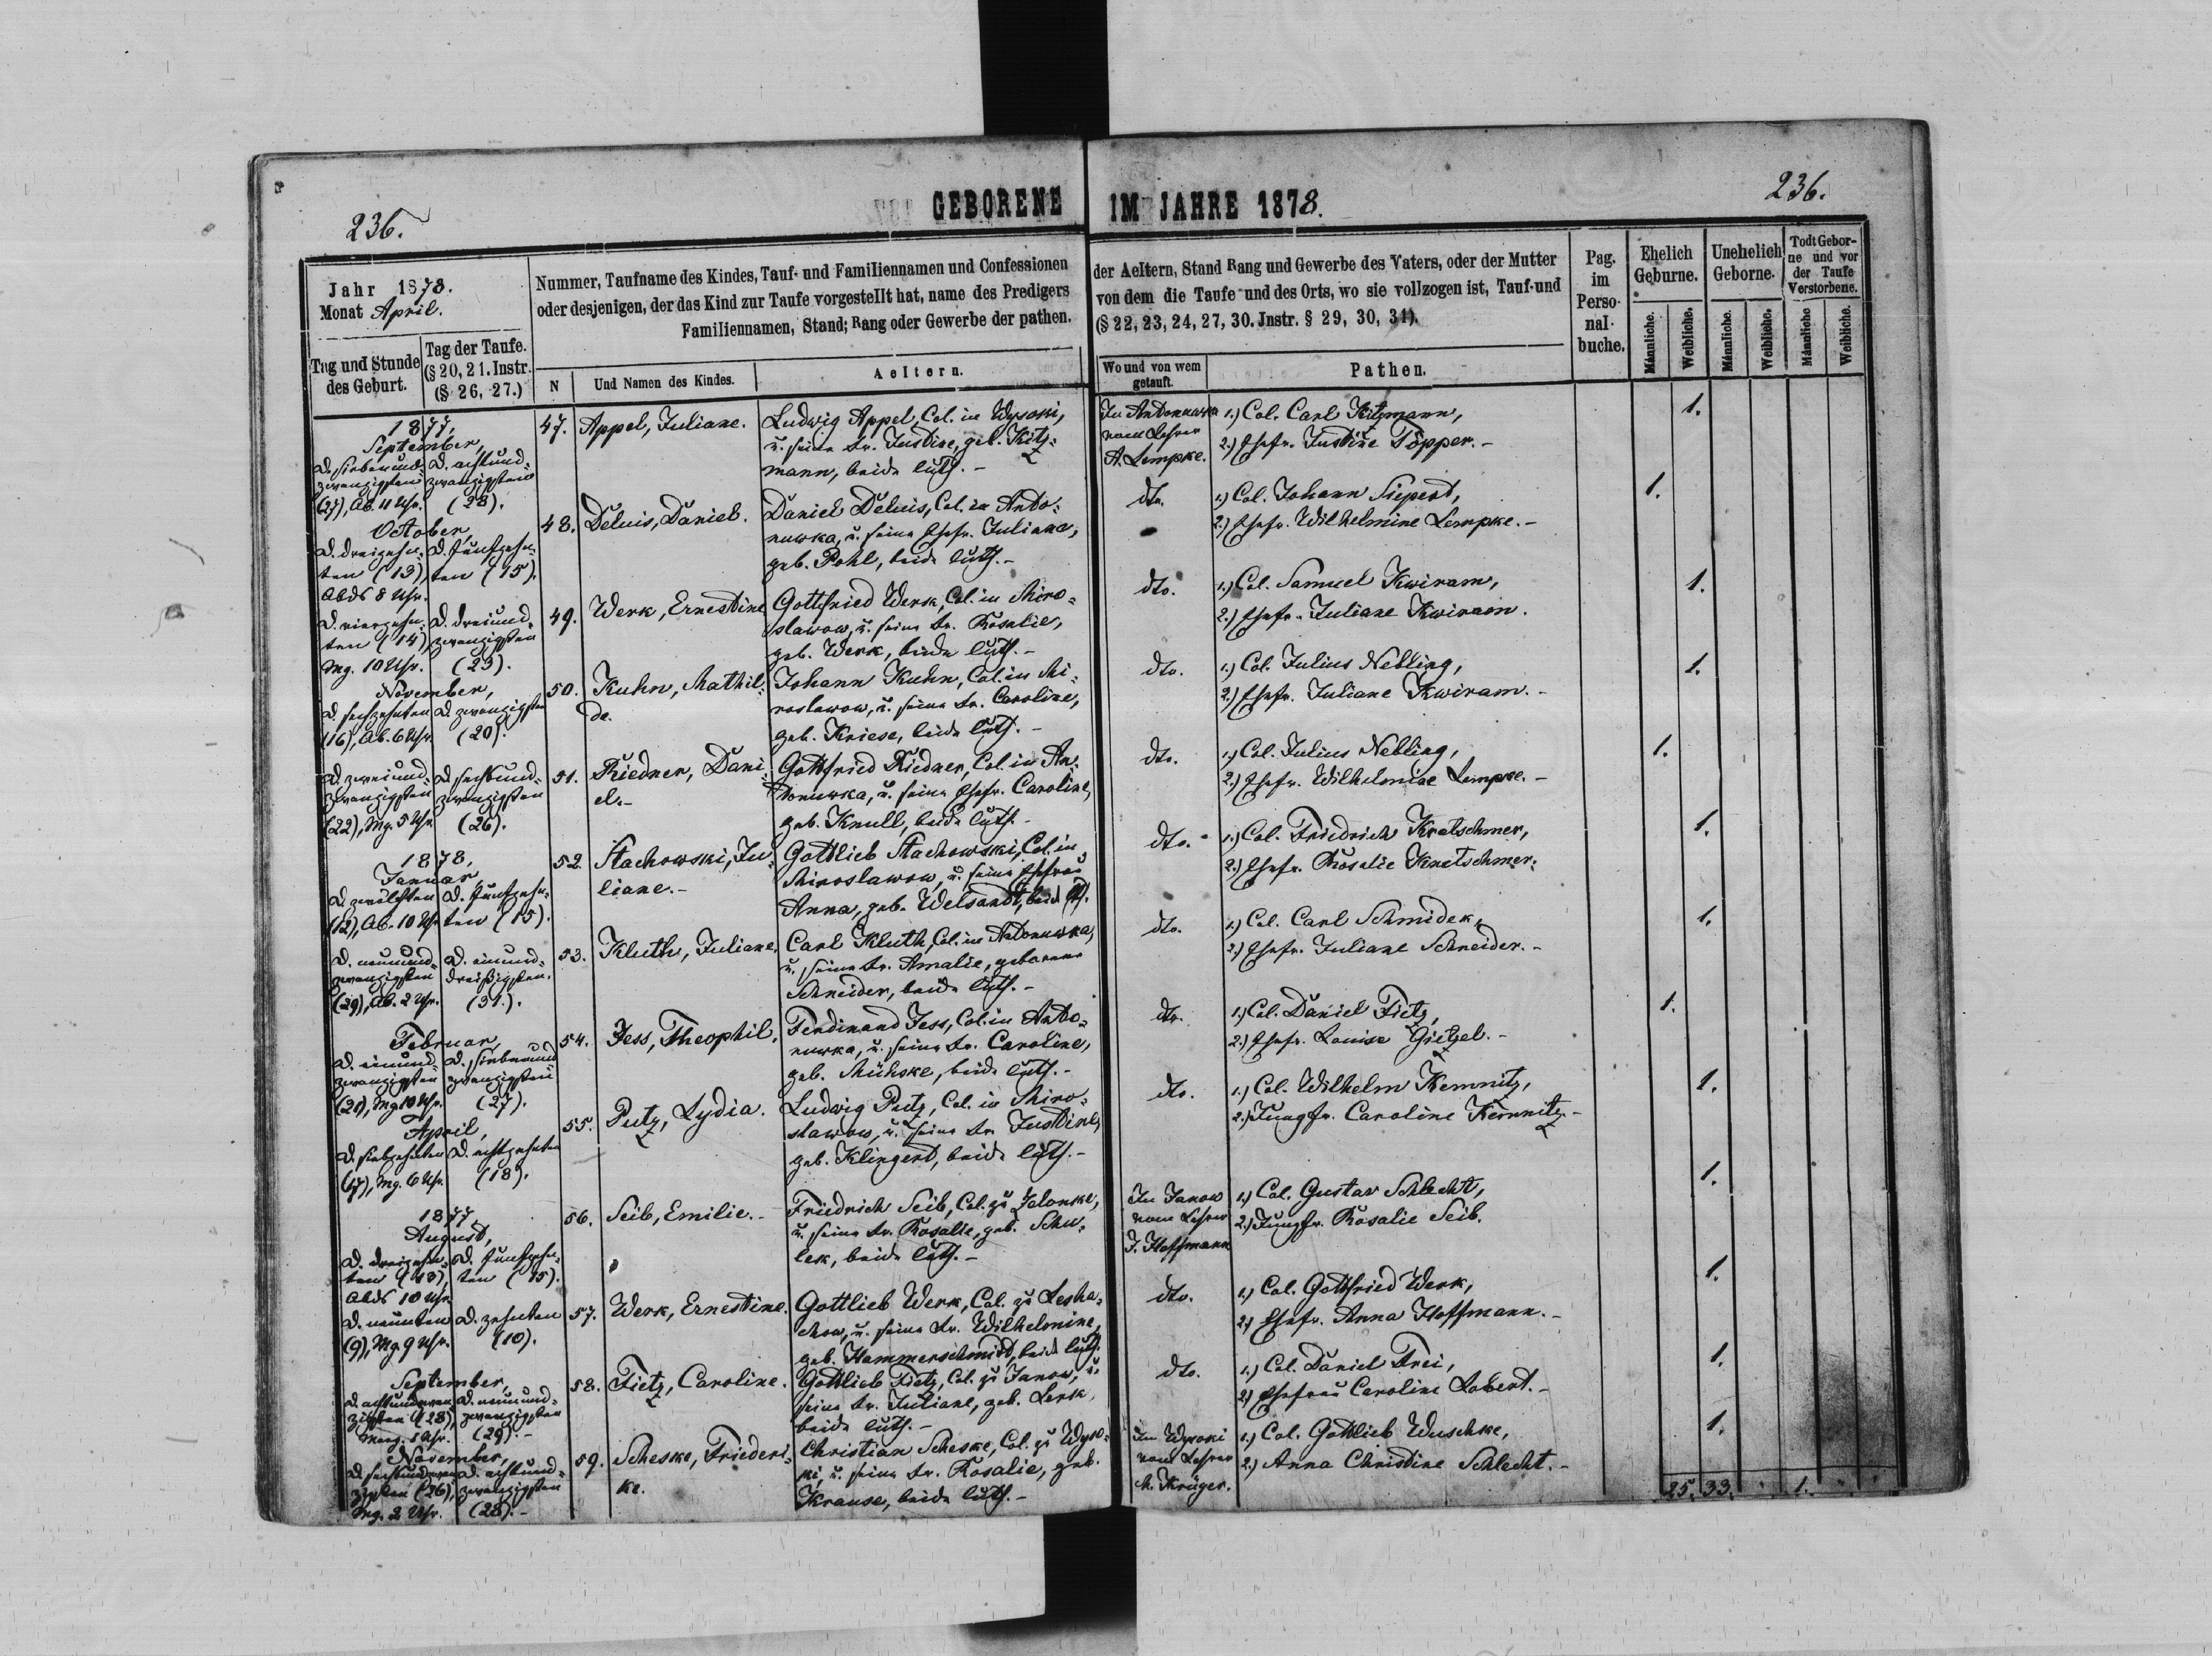 236.
GEBORENE
IM JAHRE 1878.
236.
Jahr 1878.
Monat April.
Tag und Stunde
des Geburt.
Tag der Taufe.
(§ 20, 21. Instr.
(§ 26, 27.)
Nummer, Taufname des Kindes, Tauf- und Familiennamen und Confessionen
oder desjenigen, der das Kind zur Taufe vorgestellt hat, name des Predigers
Familiennamen, Stand; Rang oder Gewerbe der pathen.
N
Und Namen des Kindes.
Aeltern.
der Aeltern, Stand Rang und Gewerbe des Vaters, oder der Mutter
von dem die Taufe und des Orts, wo sie vollzogen ist, Tauf-und
(§ 22, 23, 24, 27, 30. Jnstr. § 29, 30, 31).
Wo und von wem
getauft.
Pathen.
Pag.
im
Perso-
nal-
buche.
Ehelich
Geburne.
Unehelich
Geborne.
Todt Gebor-
ne und vor
der Taufe
Verstorbene.
Männliche.
Weibliche.
Männliche.
Weibliche.
Männliche
Weibliche.
1877,
September,
D. siebenund-
zwanzigsten
(27), Ab. 11 Uhr.
D. achtund-
zwanzigsten
(28).
47. Appel, Juliane.
Ludwig Appel, Col. in Wysoki,
u. seine Fr. Justine, geb. Kitz-
mann, beide luth. -
In Antonuwka
vom Lehrer
A. Lempke.
1.) Col. Carl Kitzmann,
2.) Ehefr. Justine Töpper. -
1.
October,
D. dreizehn-
ten (13),
Abds 8 Uhr.
D. fünfzehn-
ten (15).
48. Deluis, Daniel.
Daniel Deluis, Col. in Anto-
nuwka, u. seine Ehefr. Juliane,
geb. Pohl, beide luth. -
dto.
1.) Col. Johann Siepert,
2.) Ehefr. Wilhelmine Lempke. -
1.
D. vierzehn-
ten (14)
Mg. 10 Uhr.
D. dreiund-
zwanzigsten
(23).
49. Werk, Ernestine
Gottfried Werk, Col. in Miro-
slawow, u. seine Fr. Rosalie,
geb. Werk, beide luth. -
dto.
1.) Col. Samuel Kwiram,
2.) Ehefr. Juliane Kwiram.
1.
November,
D. sechzehnten
(16), Ab. 6 Uhr.
D. zwanzigsten
(20).
50. Kuhn, Mathil-
de.
Johann Kuhn, Col. in Mi-
roslawow, u. seine Fr. Caroline,
geb. Kriese, beide luth. -
dto.
1.) Col. Julius Nebling,
2.) Ehefr. Juliane Kwiram. -
1.
D. zweiund-
zwanzigsten
(22), Mg. 5 Uhr.
D. sechsund-
zwanzigsten
(26).
51. Riedner, Dani-
el. -
Gottfried Riedner, Col. in An-
tonuwka, u. seine Ehefr. Caroline,
geb. Knull, beide luth. -
dto.
1.) Col. Julius Nebling,
2.) Ehefr. Wilhelmine Lempke. -
1.
1878,
Januar,
D. zwölften
(12), Ab. 10 Uhr
D. fünfzehn-
ten (15).
52. Stachowski, Ju-
liane. -
Gottlieb Stachowski, Col. in
Miroslawow, u. seine Ehefrau
Anna, geb. Welsandt, beide lth.
dto.
1.) Col. Friedrich Kretschmer,
2.) Ehefr. Rosalie Kretschmer.
1.
D. neunund-
zwanzigsten
(29), Ab. 2 Uhr.
D. einund-
dreißigsten.
(31.).
53. Kluth, Juliane.
Carl Kluth, Col. in Antonuwka,
u. seine Fr. Amalie, geborene
Schneider, beide luth. -
dto.
1.) Col. Carl Schmidek,
2.) Ehefr. Juliane Schneider. -
1.
Februar,
D. einund-
zwanzigsten
(21), Mg. 10 Uhr.
D. siebenund
zwanzigsten
(27).
54. Jess, Theophil.
Ferdinand Jess, Col. in Anto-
nuwka, u. seine Fr. Caroline,
geb. Mühske, beide luth. -
dto.
1.) Col. Daniel Fietz,
2.) Ehefr. Louise Gietzel. -
1.
April,
D. siebzehnten
(17), Mg. 6 Uhr.
D. achtzehnten
(18).
55. Putz, Lydia.
Ludwig Putz, Col. in Miro-
slawow, u. seine Fr. Justine,
geb. Klingert, beide luth. -
dto.
1.) Col. Wilhelm Kemnitz,
2.) Jungfr. Caroline Kemnitz -
1.
1877
August,
D. dreizehn-
ten (13),
Abds 10 Uhr.
D. fünfzehn-
ten (15).
56. Seib, Emilie. -
Friedrich Seib, Col. zu Jelonke,
u. seine Fr. Rosalie, geb. Schu-
lek, beide luth. -
In Janow
vom Lehrer
J. Hoffmann
1.) Col. Gustav Schlecht,
2.) Jungfr. Rosalie Seib.
1.
D. neunten
(9), Mg. 9 Uhr.
D. zehnten
(10).
57. Werk, Ernestine.
Gottlieb Werk, Col. zu Lesha-
chow, u. seine Fr. Wilhelmine,
geb. Hammerschmidt, beide luth.
dto.
1.) Col. Gottfried Werk,
2.) Ehefr. Anna Hoffmann. -
1.
September,
D. achtundzwan-
zigsten (28),
Morg. 1 Uhr.
D. neunund-
zwanzigsten
(29). -
58. Fietz, Caroline.
Gottlieb Fietz, Col. zu Janow, u.
seine Fr. Juliane, geb. Lenk,
beide luth. -
dto.
1.) Col. Daniel Frei,
2.) Ehefrau Caroline Labert. -
1.
November,
D. sechsundzwan
zigsten (26),
Mg. 2 Uhr.
D. achtund-
zwanzigsten
(28). -
59. Scheske, Friederi-
ke.
Christian Scheske, Col. zu Wyso-
ki, u. seine Fr. Rosalie, geb.
Krause, beide luth. -
In Wysoki
vom Lehrer
M. Krüger.
1.) Col. Gottlieb Wuschke,
2.) Anna Christine Schlecht. -
1.
25. 33. 1.